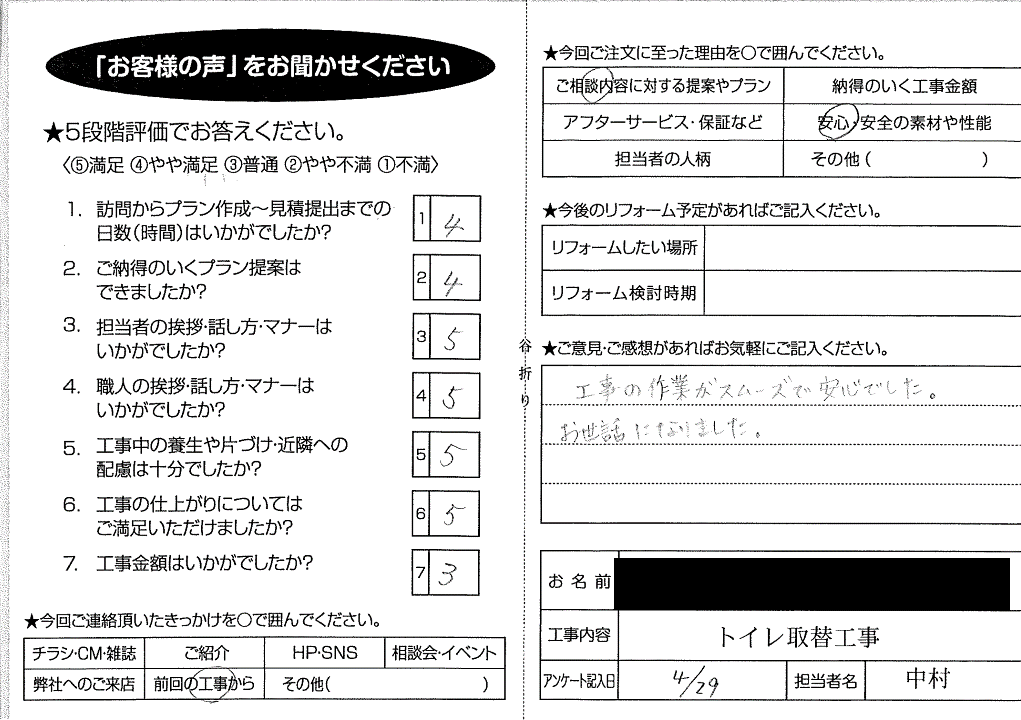 「お客様の声」をお聞かせください
★5段階評価でお答えください。
〈⑤満足 ④やや満足 ③普通 ②やや不満 ①不満〉
1. 訪問からプラン作成〜見積提出までの
日数(時間)はいかがでしたか?
1 4
2. ご納得のいくプラン提案は
できましたか?
2 4
3. 担当者の挨拶・話し方・マナーは
いかがでしたか?
3 5
4. 職人の挨拶・話し方・マナーは
いかがでしたか?
4 5
5. 工事中の養生や片づけ・近隣への
配慮は十分でしたか?
5 5
6. 工事の仕上がりについては
ご満足いただけましたか?
6 5
7. 工事金額はいかがでしたか?
7 3
★今回ご連絡頂いたきっかけを○で囲んでください。
チラシ・CM・雑誌 ご紹介 HP・SNS 相談会・イベント
弊社へのご来店 前回の工事から その他( )
谷折り
★今回ご注文に至った理由を○で囲んでください。
ご相談内容に対する提案やプラン 納得のいく工事金額
アフターサービス・保証など 安心・安全の素材や性能
担当者の人柄 その他( )
★今後のリフォーム予定があればご記入ください。
リフォームしたい場所
リフォーム検討時期
★ご意見・ご感想があればお気軽にご記入ください。
工事の作業がスムーズで安心でした。
お世話になりました。
お名前
工事内容 トイレ取替工事
アンケート記入日 4/29 担当者名 中村